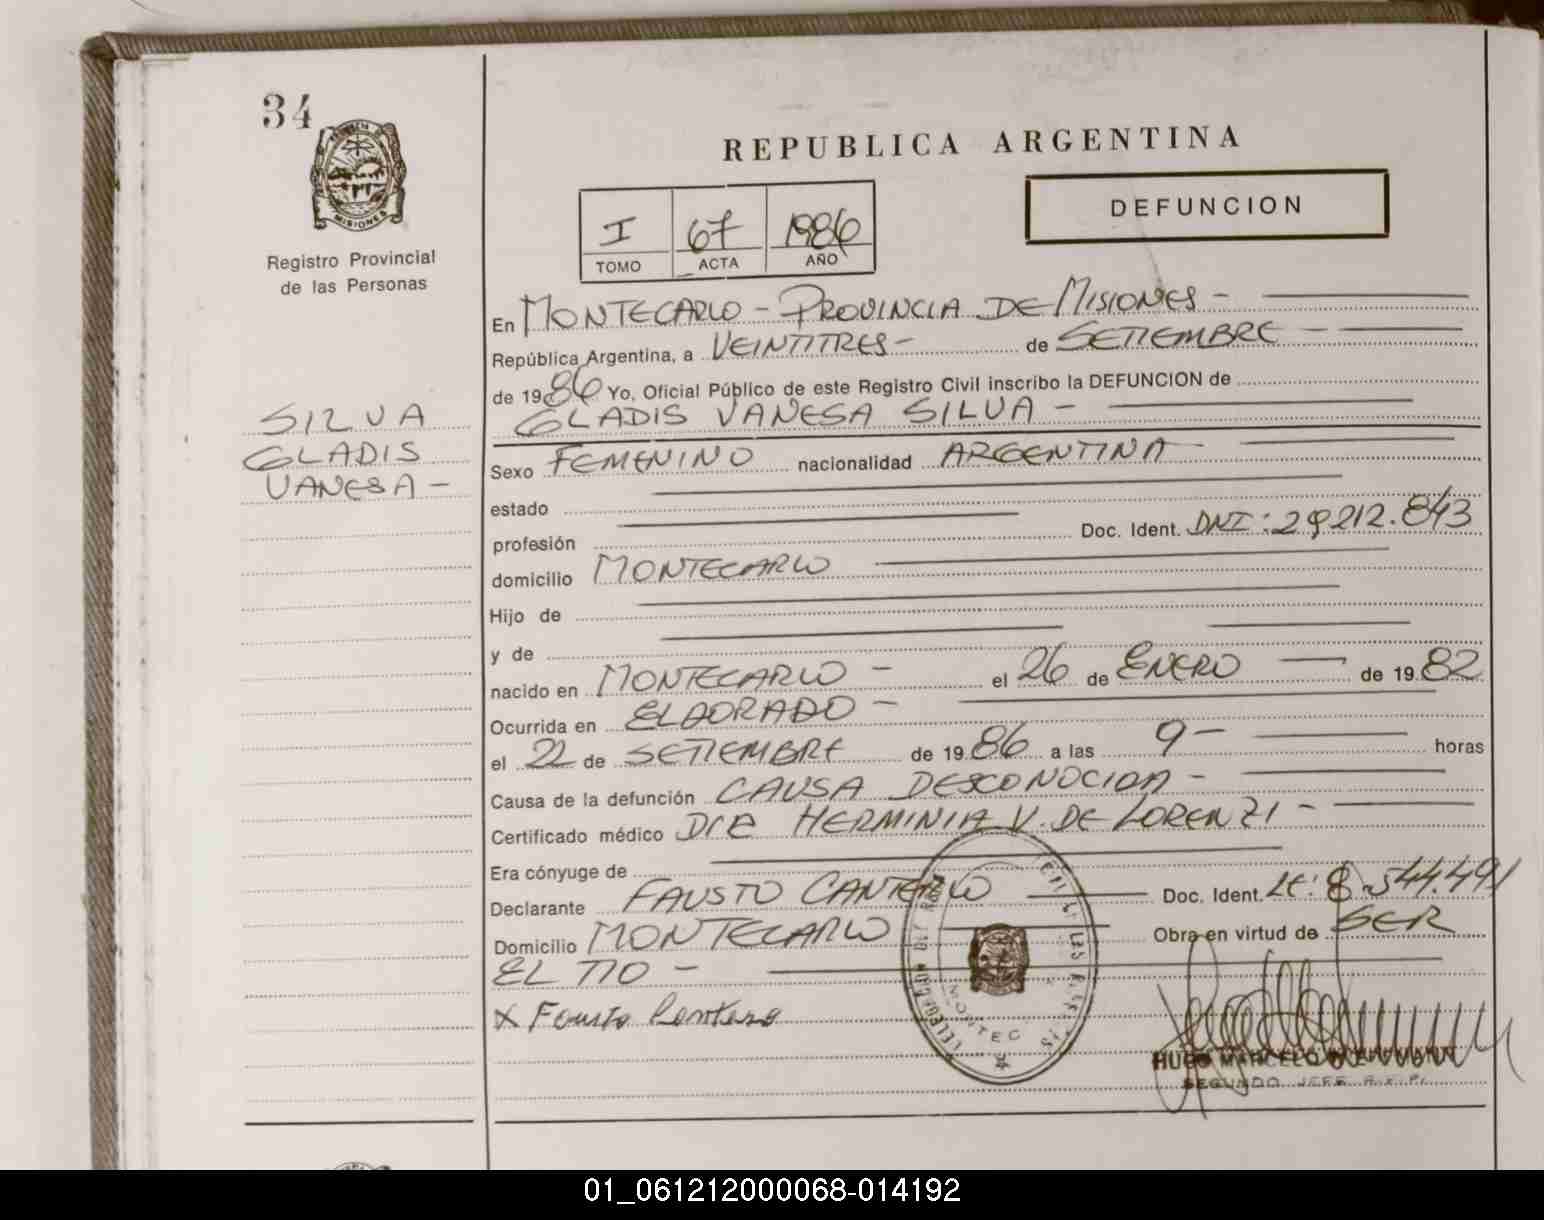 34
MISIONES
Registro Provincial
de las Personas
REPUBLICA ARGENTINA
I 67 1986
TOMO ACTA AÑO
DEFUNCION
En MONTECARLO - PROVINCIA DE MISIONES -
República Argentina, a VEINTITRES - de SETIEMBRE -
de 1986 Yo, Oficial Público de este Registro Civil inscribo la DEFUNCION de
GLADIS VANESA SILVA -
SILVA
GLADIS
VANESA -
Sexo FEMENINO nacionalidad ARGENTINA
estado
profesión Doc. Ident. DNI: 29212.843
domicilio MONTECARLO
Hijo de
y de
nacido en MONTECARLO - el 26 de ENERO de 1982
Ocurrida en ELDORADO -
el 22 de SETIEMBRE de 1986 a las 9 - horas
Causa de la defunción CAUSA DESCONOCIDA -
Certificado médico DRA HERMINIA V. DE LORENZI -
Era cónyuge de
Declarante FAUSTO CANTERO Doc. Ident. LE: 8.544.491
Domicilio MONTECARLO Obra en virtud de SER
EL TIO -
X Fausto Cantero
MONTEC
HUGO MARCELO
SEGUNDO JEFE R.P.
01_061212000068-014192